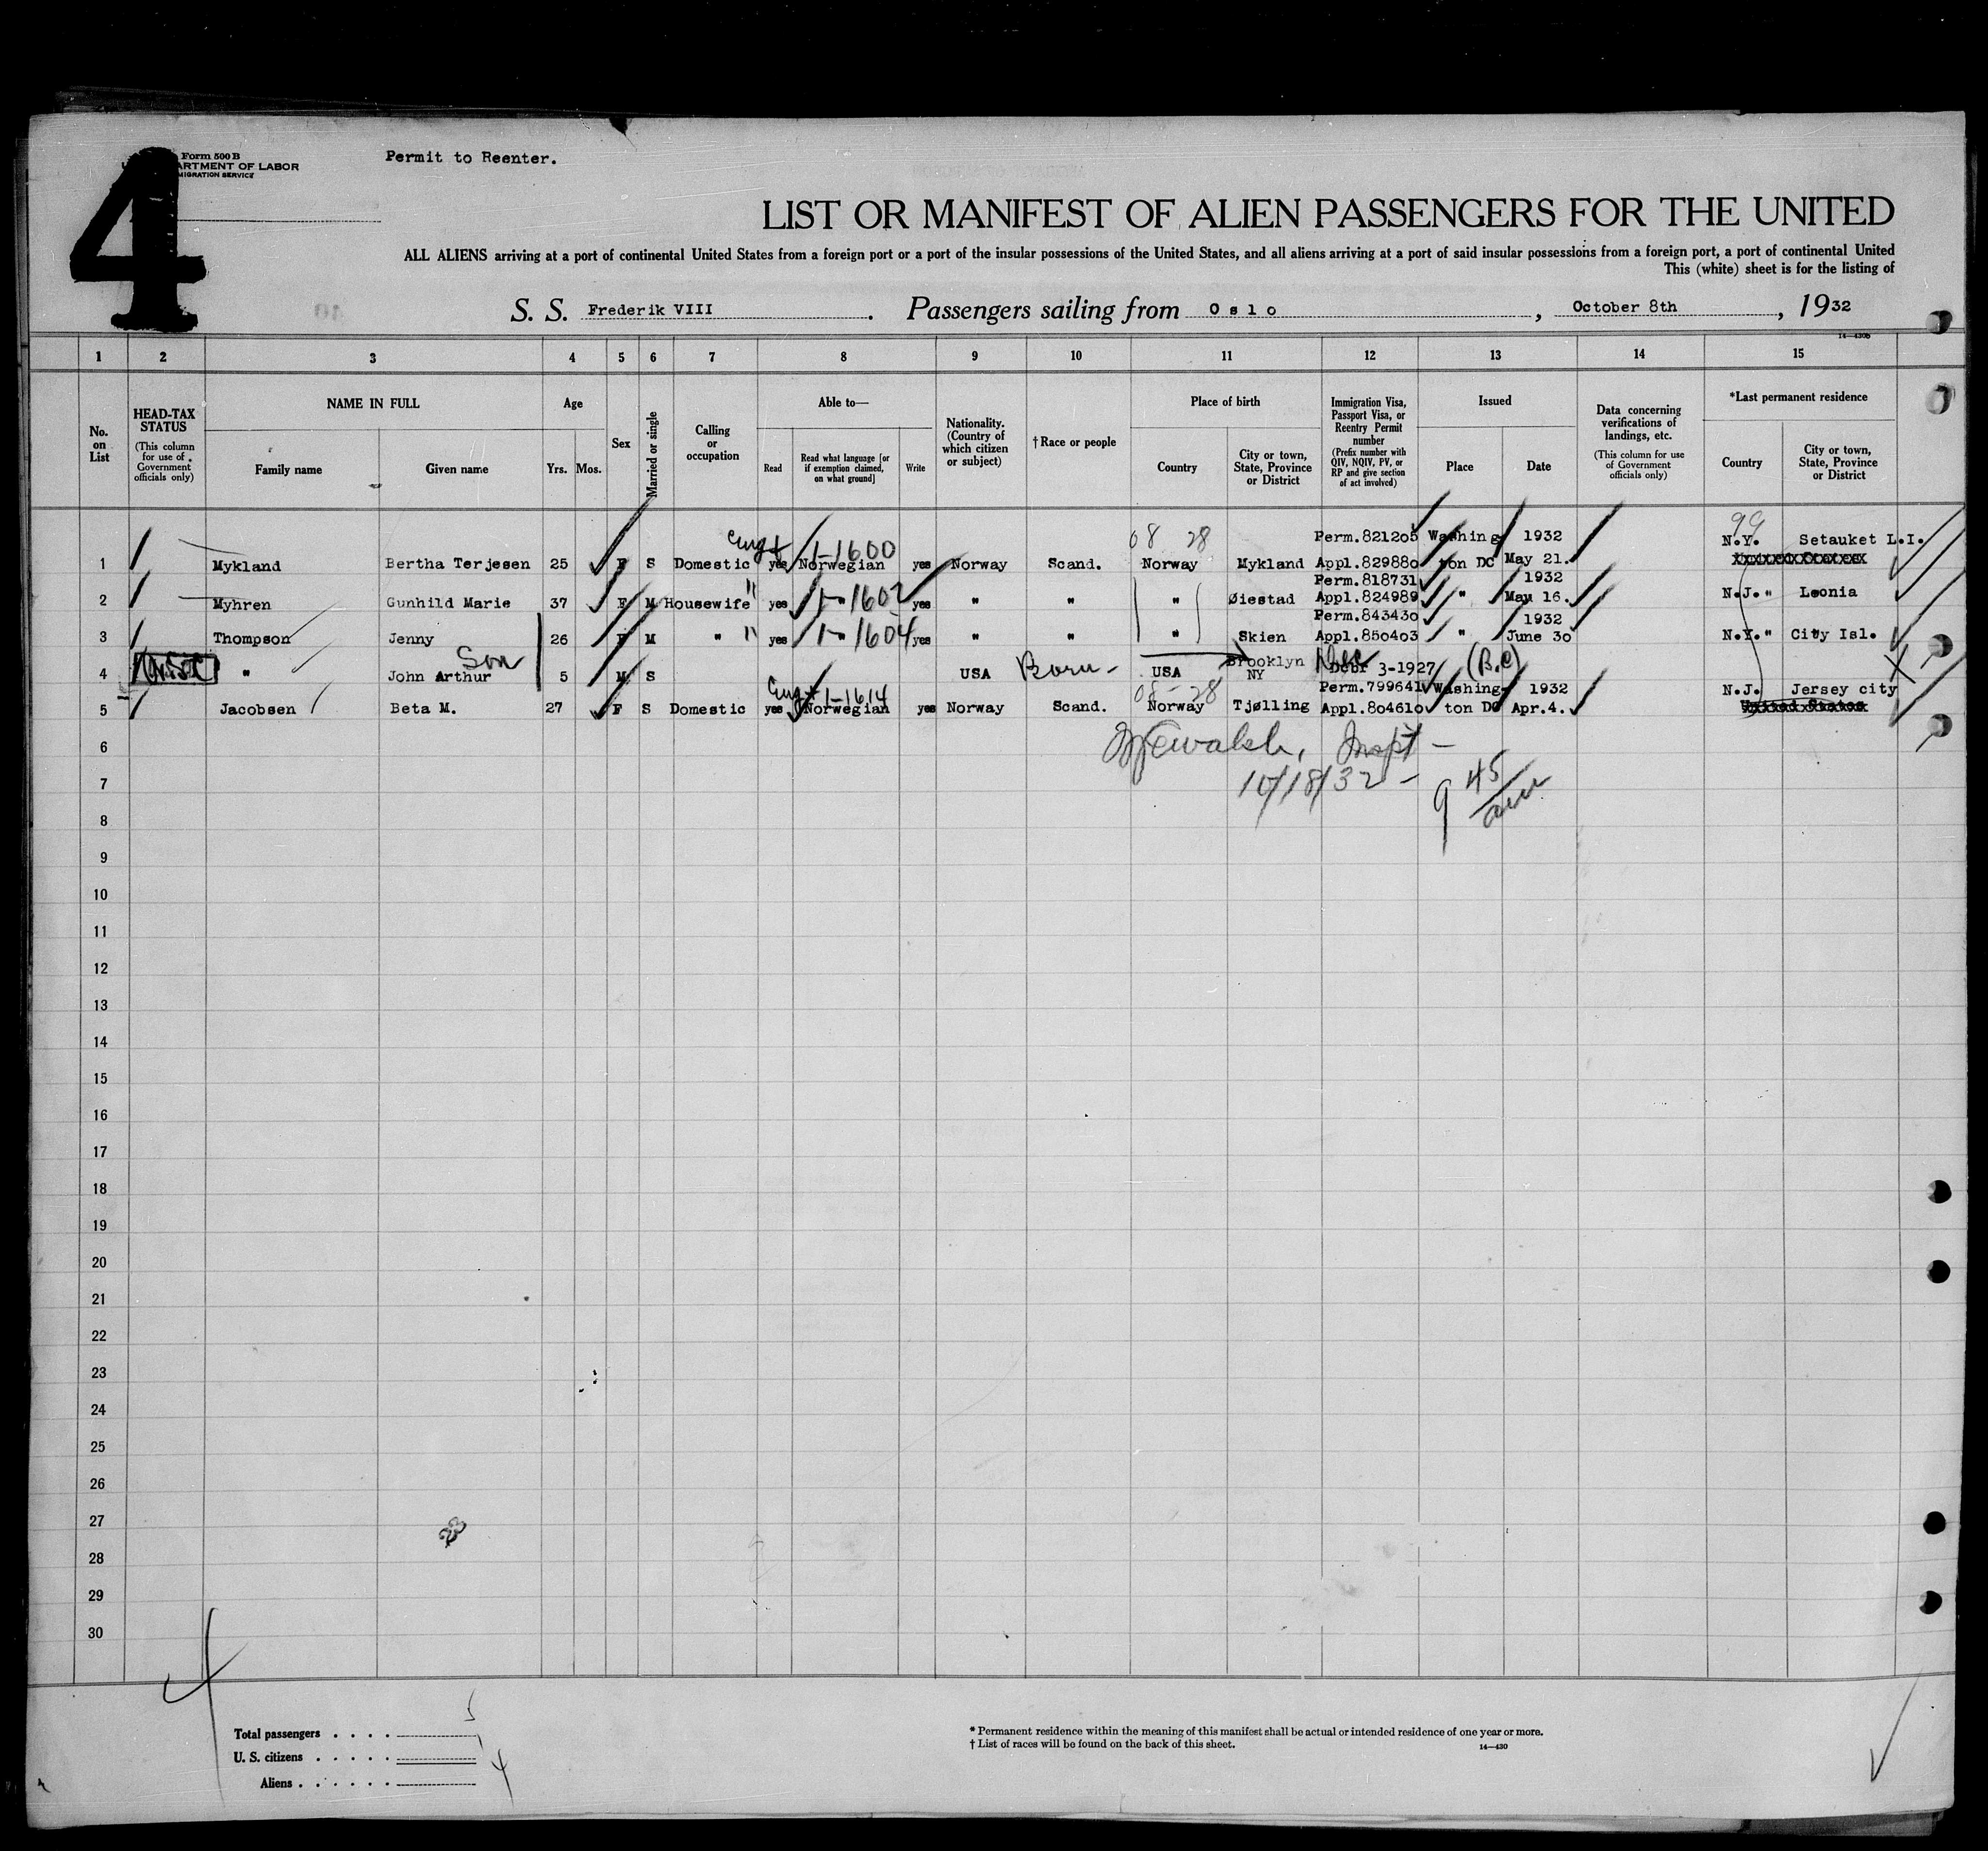 4
Form 500 B
ARTMENT OF LABOR
MIGRATION SERVICE
Permit to Reenter.
LIST OR MANIFEST OF ALIEN PASSENGERS FOR THE UNITED
ALL ALIENS arriving at a port of continental United States from a foreign port or a port of the insular possessions of the United States, and all aliens arriving at a port of said insular possessions from a foreign port, a port of continental United
This (white) sheet is for the listing of
S. S. Frederik VIII . Passengers sailing from Oslo , October 8th , 1932
14—430B
1 2 3 4 5 6 7 8 9 10 11 12 13 14 15
No. on List
HEAD-TAX STATUS (This column for use of Government officials only)
NAME IN FULL
Family name Given name
Age Yrs. Mos.
Sex
Married or single
Calling or occupation
Able to—
Read Read what language [or if exemption claimed, on what ground] Write
Nationality. (Country of which citizen or subject)
†Race or people
Place of birth
Country City or town, State, Province or District
Immigration Visa, Passport Visa, or Reentry Permit number (Prefix number with QIV, NQIV, PV, or RP and give section of act involved)
Issued
Place Date
Data concerning verifications of landings, etc. (This column for use of Government officials only)
*Last permanent residence
Country City or town, State, Province or District
Eng + 1-1600 08 28 Perm.821205 Washing 1932 99 N.Y. Setauket L.I.
1 Mykland Bertha Terjesen 25 F S Domestic yes Norwegian yes Norway Scand. Norway Mykland Appl.829880 ton DC May 21.
Perm.818731 1932
2 Myhren Gunhild Marie 37 F M Housewife " yes 1-"1602 yes " " " Øiestad Appl.824989 " May 16. N.J." Leonia
Perm.843430 1932
3 Thompson Jenny 26 F M " " yes 1-"1604 yes " " " Skien Appl.850403 " June 30 N.Y." City Isl.
4 " John Arthur Son 5 M S USA Born - USA Brooklyn NY Dec 3-1927 (B.C)
Eng + 1-1614 08 - 28 Perm.799641 Washing- 1932 N.J. Jersey city
5 Jacobsen Beta M. 27 F S Domestic yes Norwegian yes Norway Scand. Norway Tjølling Appl.804610 ton DC Apr.4. United States
6 Inspt -
7 10/18/32 - 9 45/am
8
9
10
11
12
13
14
15
16
17
18
19
20
21
22
23
24
25
26
27
28
29
30
Total passengers . . . . 5
U. S. citizens . . . . . 1
Aliens . . . . . . 4
* Permanent residence within the meaning of this manifest shall be actual or intended residence of one year or more.
† List of races will be found on the back of this sheet.
14—430